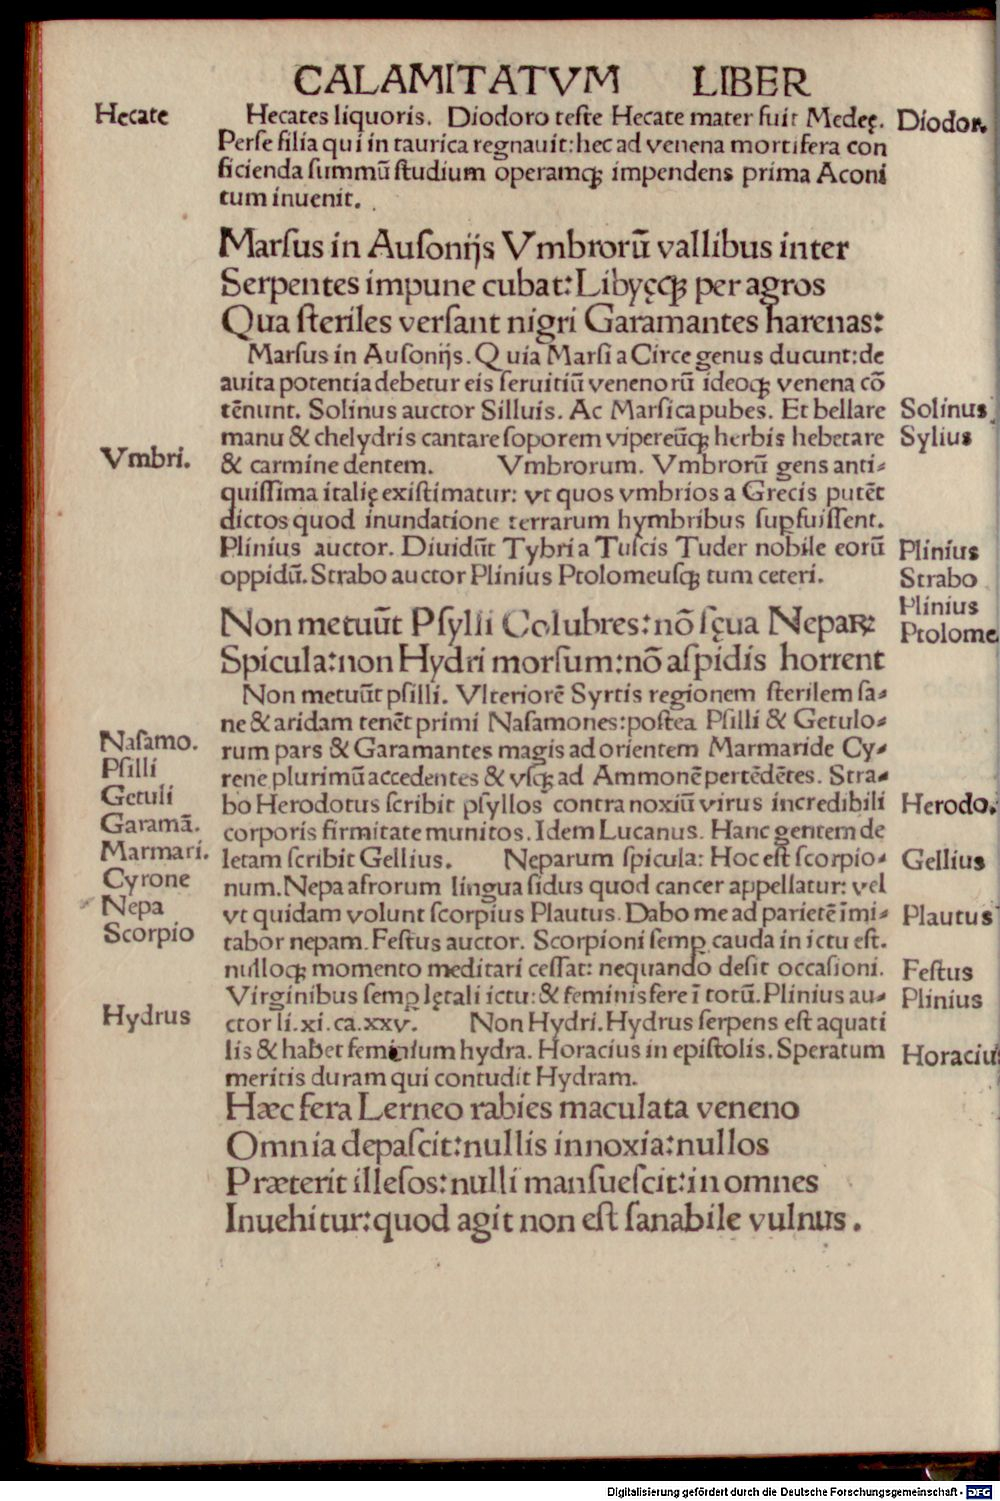 CALAMITATVM LIBER
Hecate
Hecates liquoris. Diodoro teſte Hecate mater fuit Medeę.
Diodor.
Perſe filia qui in taurica regnauit: hec ad venena mortifera con
ficienda ſummū ſtudium operamqꝫ impendens prima Aconi
tum inuenit.
Marſus in Auſonijs Vmbrorū vallibus inter
Serpentes impune cubat: Libyęqꝫ per agros
Qua ſteriles verſant nigri Garamantes harenas:
Marſus in Auſonijs. Quia Marſi a Circe genus ducunt: de
auita potentia debetur eis ſeruitiū venenorū ideoqꝫ venena cō
tēnunt. Solinus auctor Silluis. Ac Marſica pubes. Et bellare
Solinus
manu & chelydris cantare ſoporem vipereūqꝫ herbis hebetare
Sylius
Vmbri.
& carmine dentem. Vmbrorum. Vmbrorū gens anti⸗
quiſſima italię exiſtimatur: vt quos vmbrios a Grecis putēt
dictos quod inundatione terrarum hymbribus ſuꝑfuiſſent.
Plinius auctor. Diuidūt Tybri a Tuſcis Tuder nobile eorū
Plinius
oppidū. Strabo auctor Plinius Ptolomeuſqꝫ tum ceteri.
Strabo
Plinius
Ptolome
Non metuūt Pſylli Colubres: nō ſęua Nepaꝝ:
Spicula: non Hydri morſum: nō aſpidis horrent
Non metuūt pſilli. Vlteriorē Syrtis regionem ſterilem ſa⸗
ne & aridam tenēt primi Naſamones: poſtea Pſilli & Getulo⸗
Naſamo.
rum pars & Garamantes magis ad orientem Marmaride Cy⸗
Pſilli
rene plurimū accedentes & vſqꝫ ad Ammonē pertēdētes. Stra⸗
Getuli
bo Herodotus ſcribit pſyllos contra noxiū virus incredibili
Herodo.
Garamā.
corporis firmitate munitos. Idem Lucanus. Hanc gentem de
Marmari.
letam ſcribit Gellius. Neparum ſpicula: Hoc eſt ſcorpio⸗
Gellius
Cyrone
num. Nepa afrorum lingua ſidus quod cancer appellatur: vel
Nepa
vt quidam volunt ſcorpius Plautus. Dabo me ad parietē īmi⸗
Plautus
Scorpio
tabor nepam. Feſtus auctor. Scorpioni ſemꝑ cauda in ictu eſt.
nulloqꝫ momento meditari ceſſat: nequando deſit occaſioni.
Feſtus
Virginibus ſemꝑ lętali ictu: & feminis fere ī totū. Plinius au⸗
Plinius
Hydrus
ctor li. xi. ca. xxv. Non Hydri. Hydrus ſerpens eſt aquati
lis & habet femininum hydra. Horacius in epiſtolis. Speratum
Horaciu
meritis duram qui contudit Hydram.
Hæc fera Lerneo rabies maculata veneno
Omnia depaſcit: nullis innoxia: nullos
Præterit illeſos: nulli manſueſcit: in omnes
Inuehitur: quod agit non eſt ſanabile vulnus.
Digitalisierung gefördert durch die Deutsche Forschungsgemeinschaft - DFG